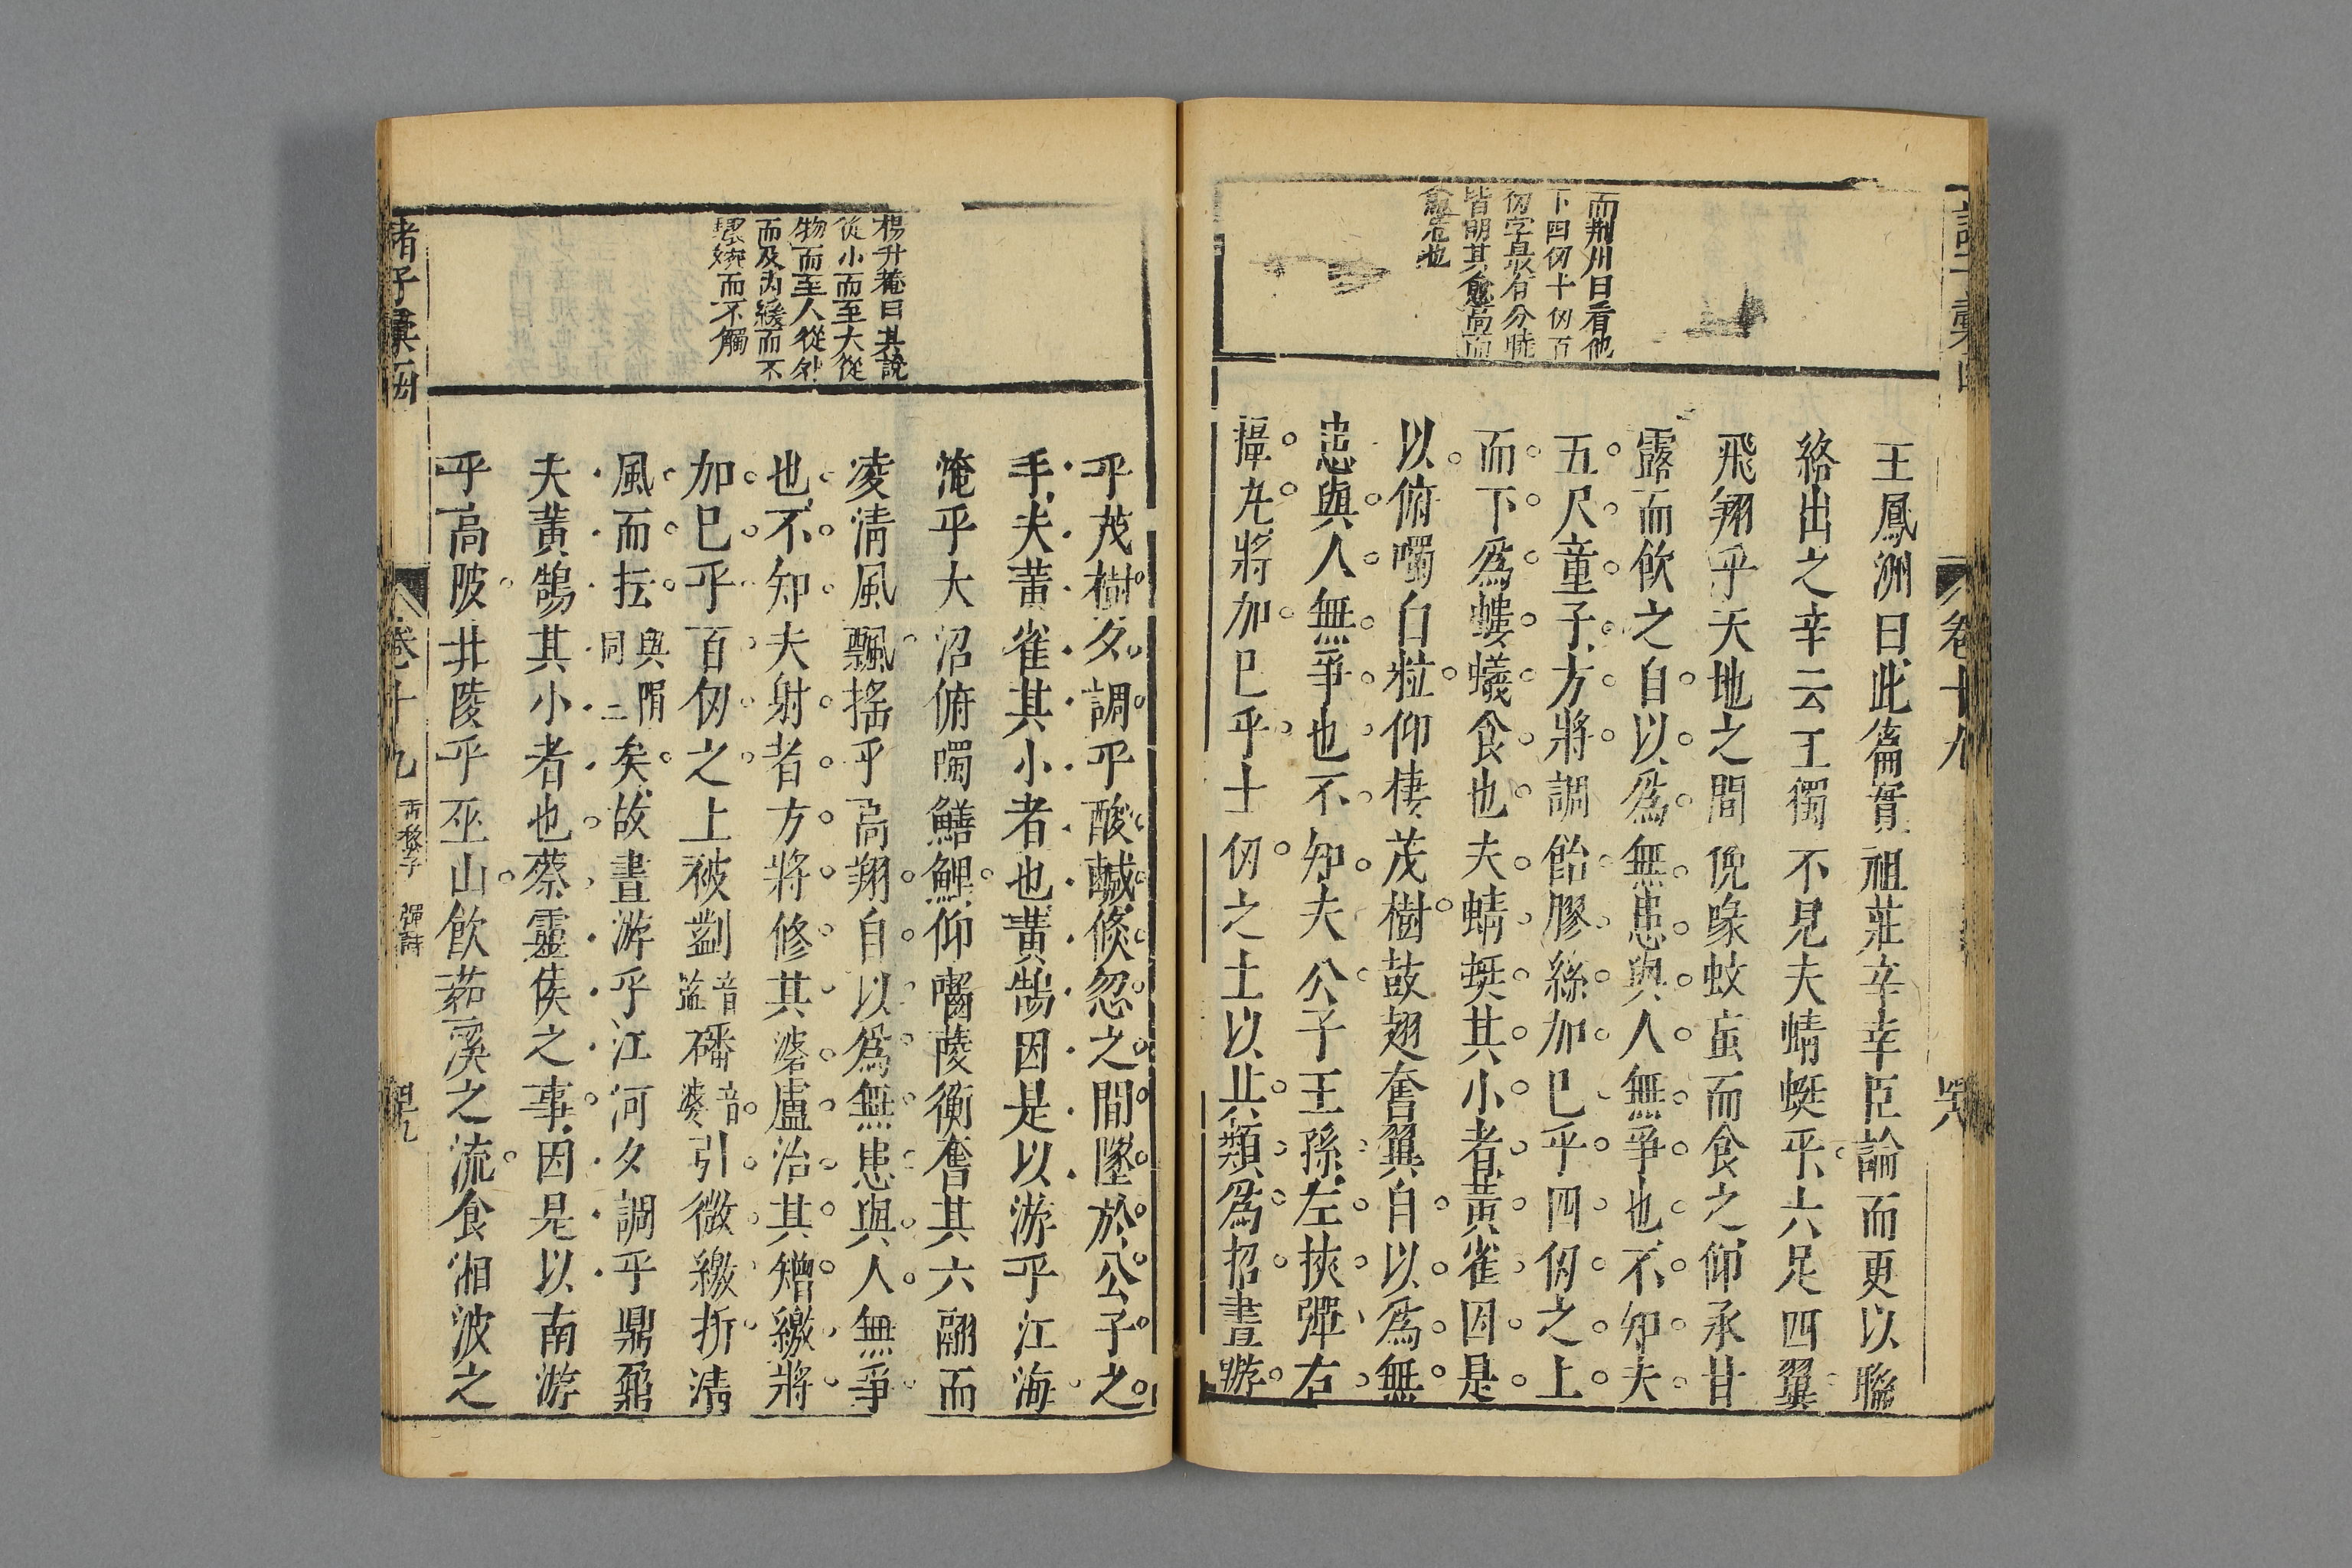 而荆川曰看他
下四仞十仞百
仞字最有分曉
皆明其愈高而
愈危也
王鳳洲曰此篇實祖莊辛幸臣論而更以聯
絡出之辛云王獨不見夫蜻蜓乎六足四翼
飛翔乎天地之間俛啄蚊䖟而食之仰承甘
露而飲之自以爲無患與人無爭也不知夫
五尺童子方將調飴膠絲加巳乎四仞之上
而下爲螻蟻食也夫蜻蜓其小者黃雀因是
以俯噣白粒仰棲茂樹鼓翅奮翼自以爲無
患與人無爭也不知夫公子王孫左挾彈右
攝丸將加巳乎十仞之上以其類爲招晝游
卷十九
楊升菴曰其說
從小而至大從
物而至人從外
而及内緩而不
而不觸
乎茂樹夕調乎酸醎倐忽之間墜於公子之
手夫黃雀其小者也黃鵠因是以游乎江海
淹乎大沼俯噣鱔鯉仰嚙蔆衡奮其六翮而
凌清風飄搖乎高翔自以爲無患與人無爭
也不知夫射者方將修其碆盧治其矰繳將
加巳乎百仞之上被劉音藍磻音婆引微繳折清
風而抎與隕同二矣故晝游乎江河夕調乎鼎鼐
夫黃鵠其小者也蔡靈侯之事因是以南游
乎高陂北陵乎巫山飲茹溪之流食湘波之
諸子彙函
卷十九